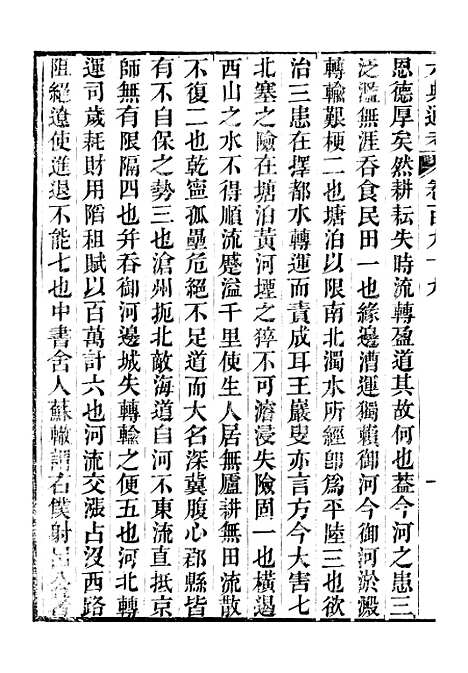 六典通考卷百九十九
恩德厚矣然耕耘失時流轉盈道其故何也葢今河之患三
泛濫無涯吞食民田一也緣邊漕運獨賴御河今御河淤澱
轉輸艱梗二也塘泊以限南北濁水所經卽爲平陸三也欲
治三患在擇都水轉運而責成耳王巖叟亦言方今大害七
北塞之險在塘泊黃河堙之猝不可濬浸失險固一也橫遏
西山之水不得順流蹙溢千里使生人居無廬耕無田流散
不復二也乾寧孤壘危絕不足道而大名深冀腹心郡縣皆
有不自保之勢三也滄州扼北敵海道自河不東流直抵京
師無有限隔四也弁吞御河邊城失轉輸之便五也河北轉
運司歲耗財用陷租賦以百萬計六也河流交漲占沒西路
阻絕遼使進退不能七也中書舍人蘇轍謂右僕射呂公著